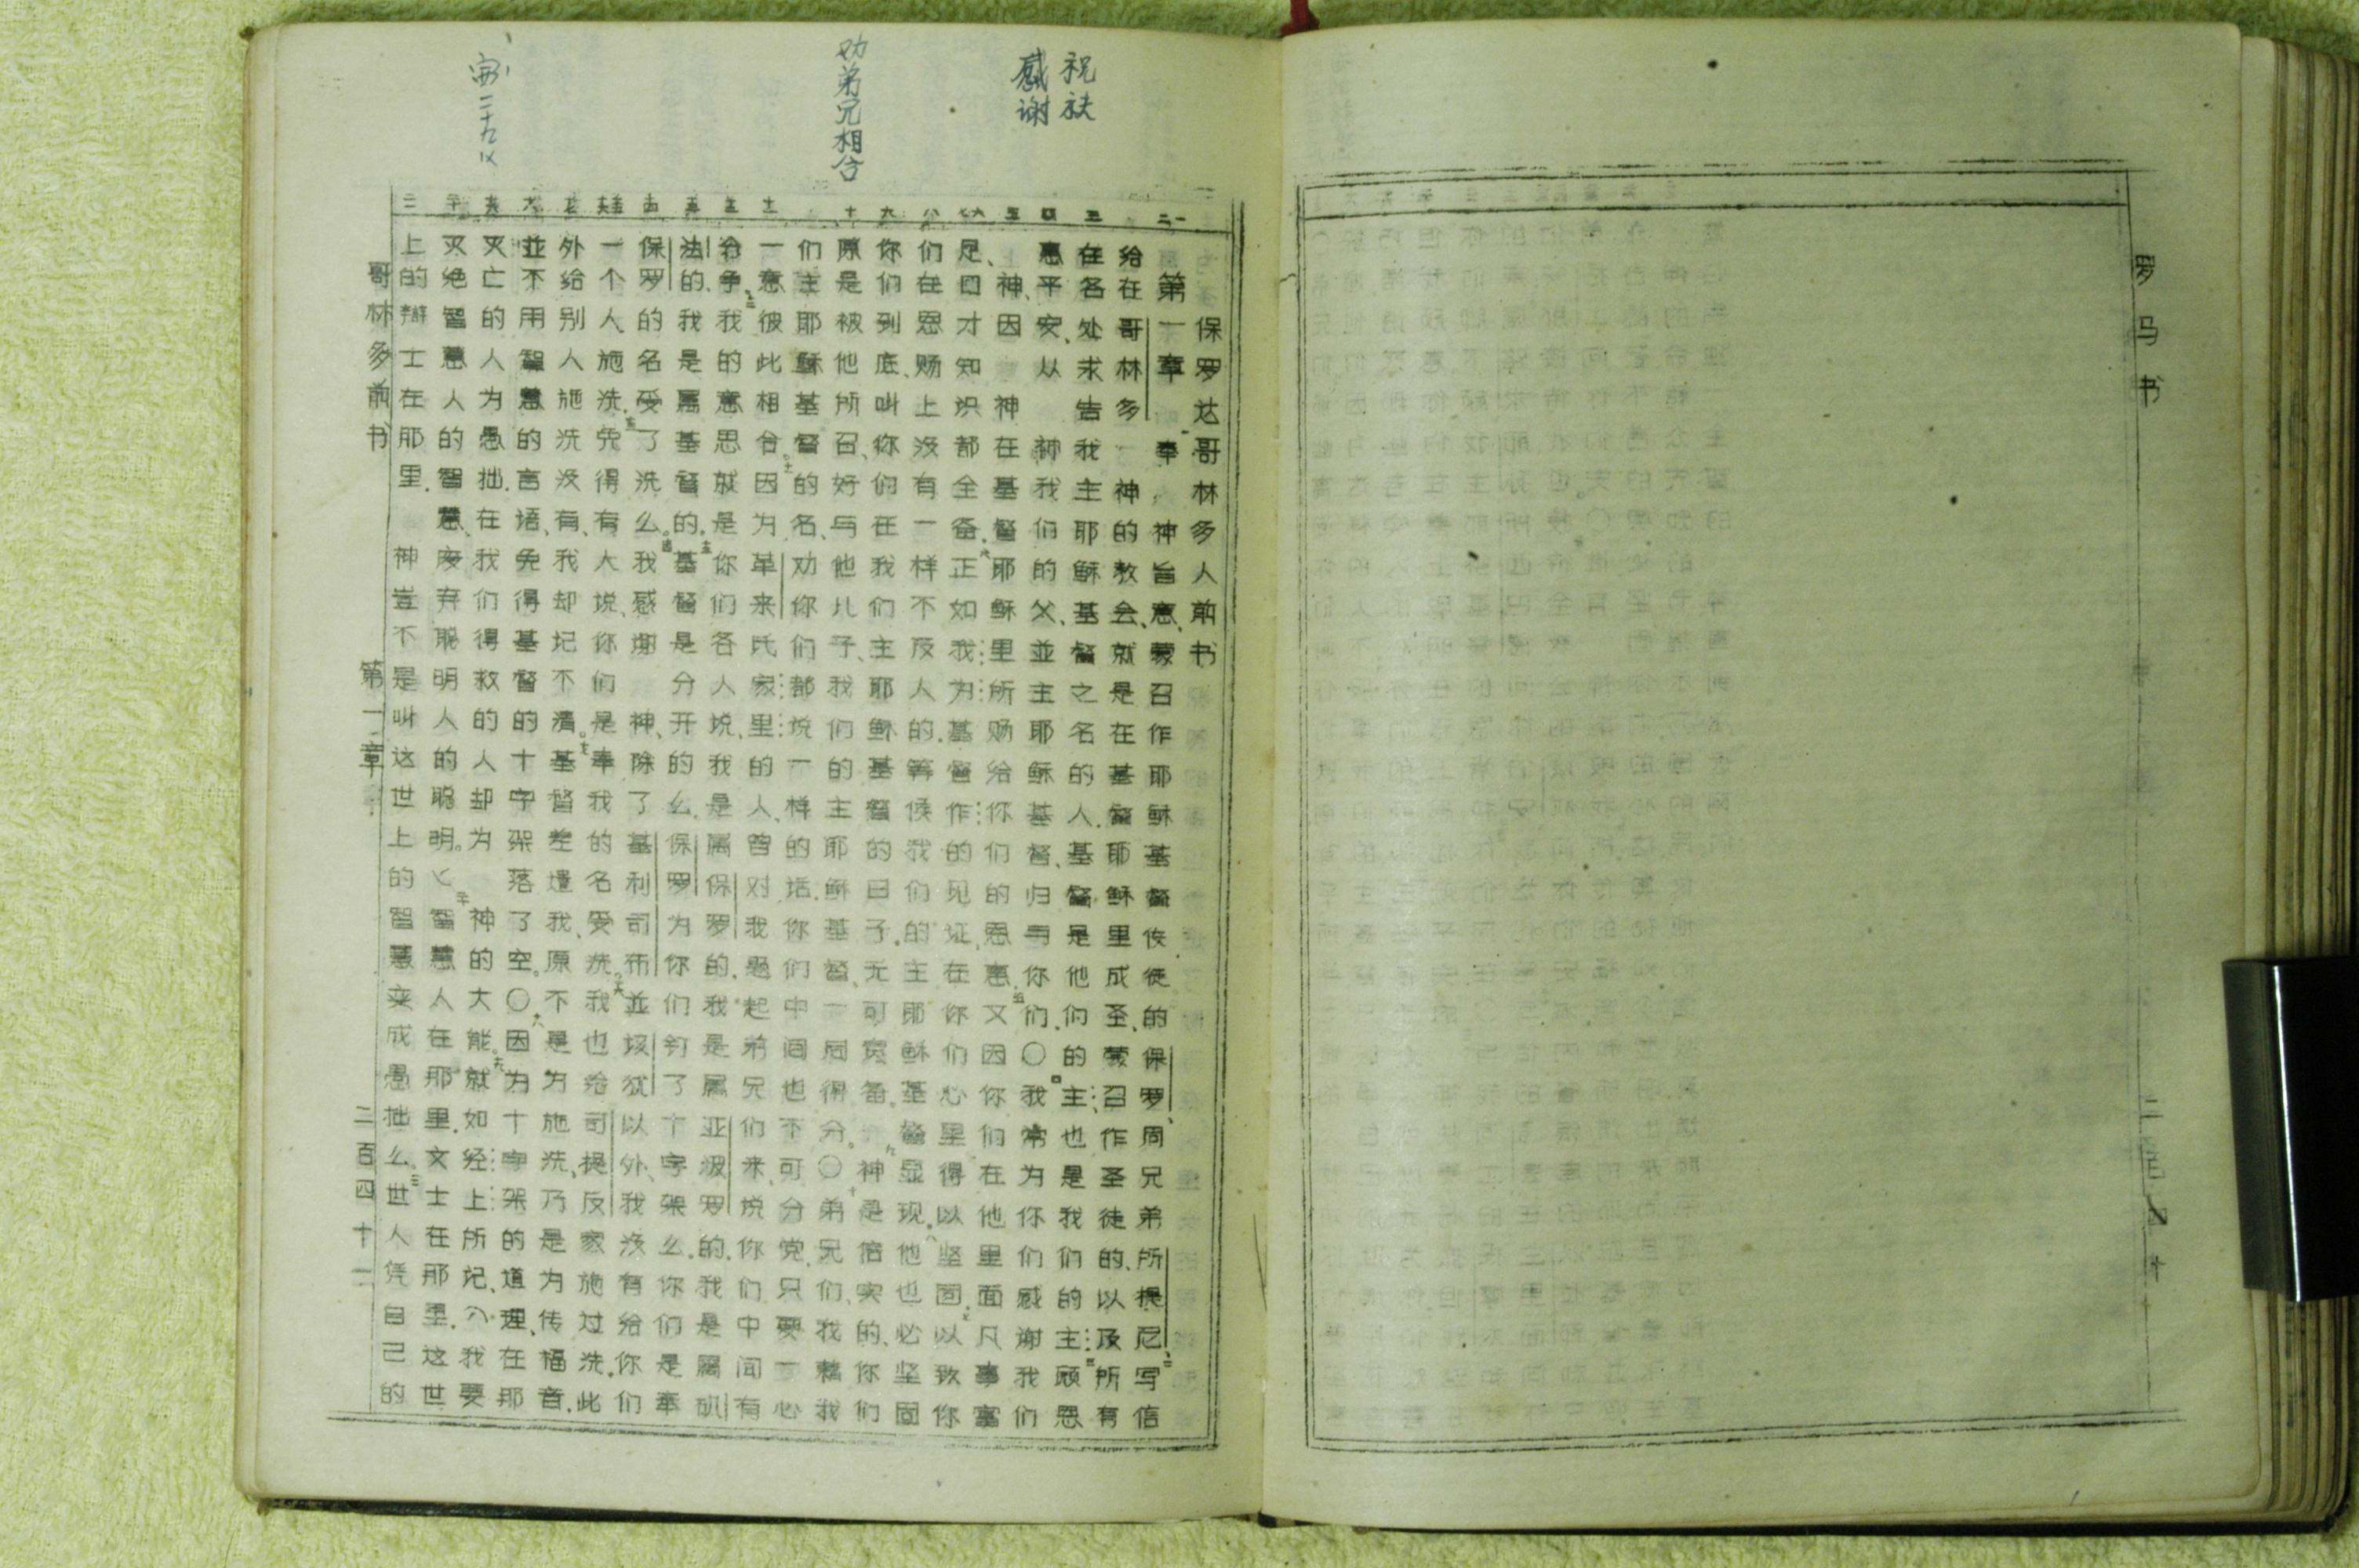 罗马书
二百四十
祝祆
感谢
劝弟兄相合
保罗达哥林多人前书
第一章 奉 神旨意、蒙召作耶稣基督使徒的保罗、周兄弟所提尼写信
给在哥林多 神的教会、就是在基督耶稣里成圣、蒙召作圣徒的、以及所有
在各处求告我主耶稣基督之名的人.基督是他们的主、也是我们的主.愿恩
惠平安、从 神我们的父、並主耶稣基督、归与你们.〇我常为你们感谢我们
神、因 神在基督耶稣里所赐给你们的恩惠.又因你们在他里面凡事富
足、口才知识都全备.正如我为基督作的见证、在你们心里得以坚固.以致你
们在恩赐上没有一样不及人的.等候我们的主耶稣基督显现.他也必坚固
你们到底、叫你们在我们主耶稣基督的日子.无可责备. 神是信实的、你们
原是被他所召、好与他儿子、我们的主耶稣基督一同得分。〇弟兄们、我藉我
们主耶稣基督的名、劝你们都说一样的话.你们中间也不可分党.只要一心
一意彼此相合。因为革来氏家里的人、曾对我题起弟兄们来、说你们中间有
分争。我的意思就是你们各人说、我是属保罗的.我是属亚波罗的.我是属矶
法的.我是属基督的.基督是分开的么.保罗为你们钉了十字架么.你们是奉
保罗的名受了洗么。我感谢 神、除了基利司布並该犹以外、我没有给你们
一个人施洗.免得有人说、你们是奉我的名受洗。我也给司提反家施过洗.此
外给别人施洗没有、我却记不清。基督差遣我、原不是为施洗、乃是为传福音.
並不用智慧的言语、免得基督的十字架落了空。〇因为十字架的道理、在那
灭亡的人为愚拙.在我们得救的人却为 神的大能。就如经上所记、『我要
灭绝智慧人的智慧、废弃聪明人的聪明。』智慧人在那里.文士在那里.这世
上的辩士在那里. 神岂不是叫这世上的智慧变成愚拙么。世人凭自己的
哥林多前书 第一章 二百四十一